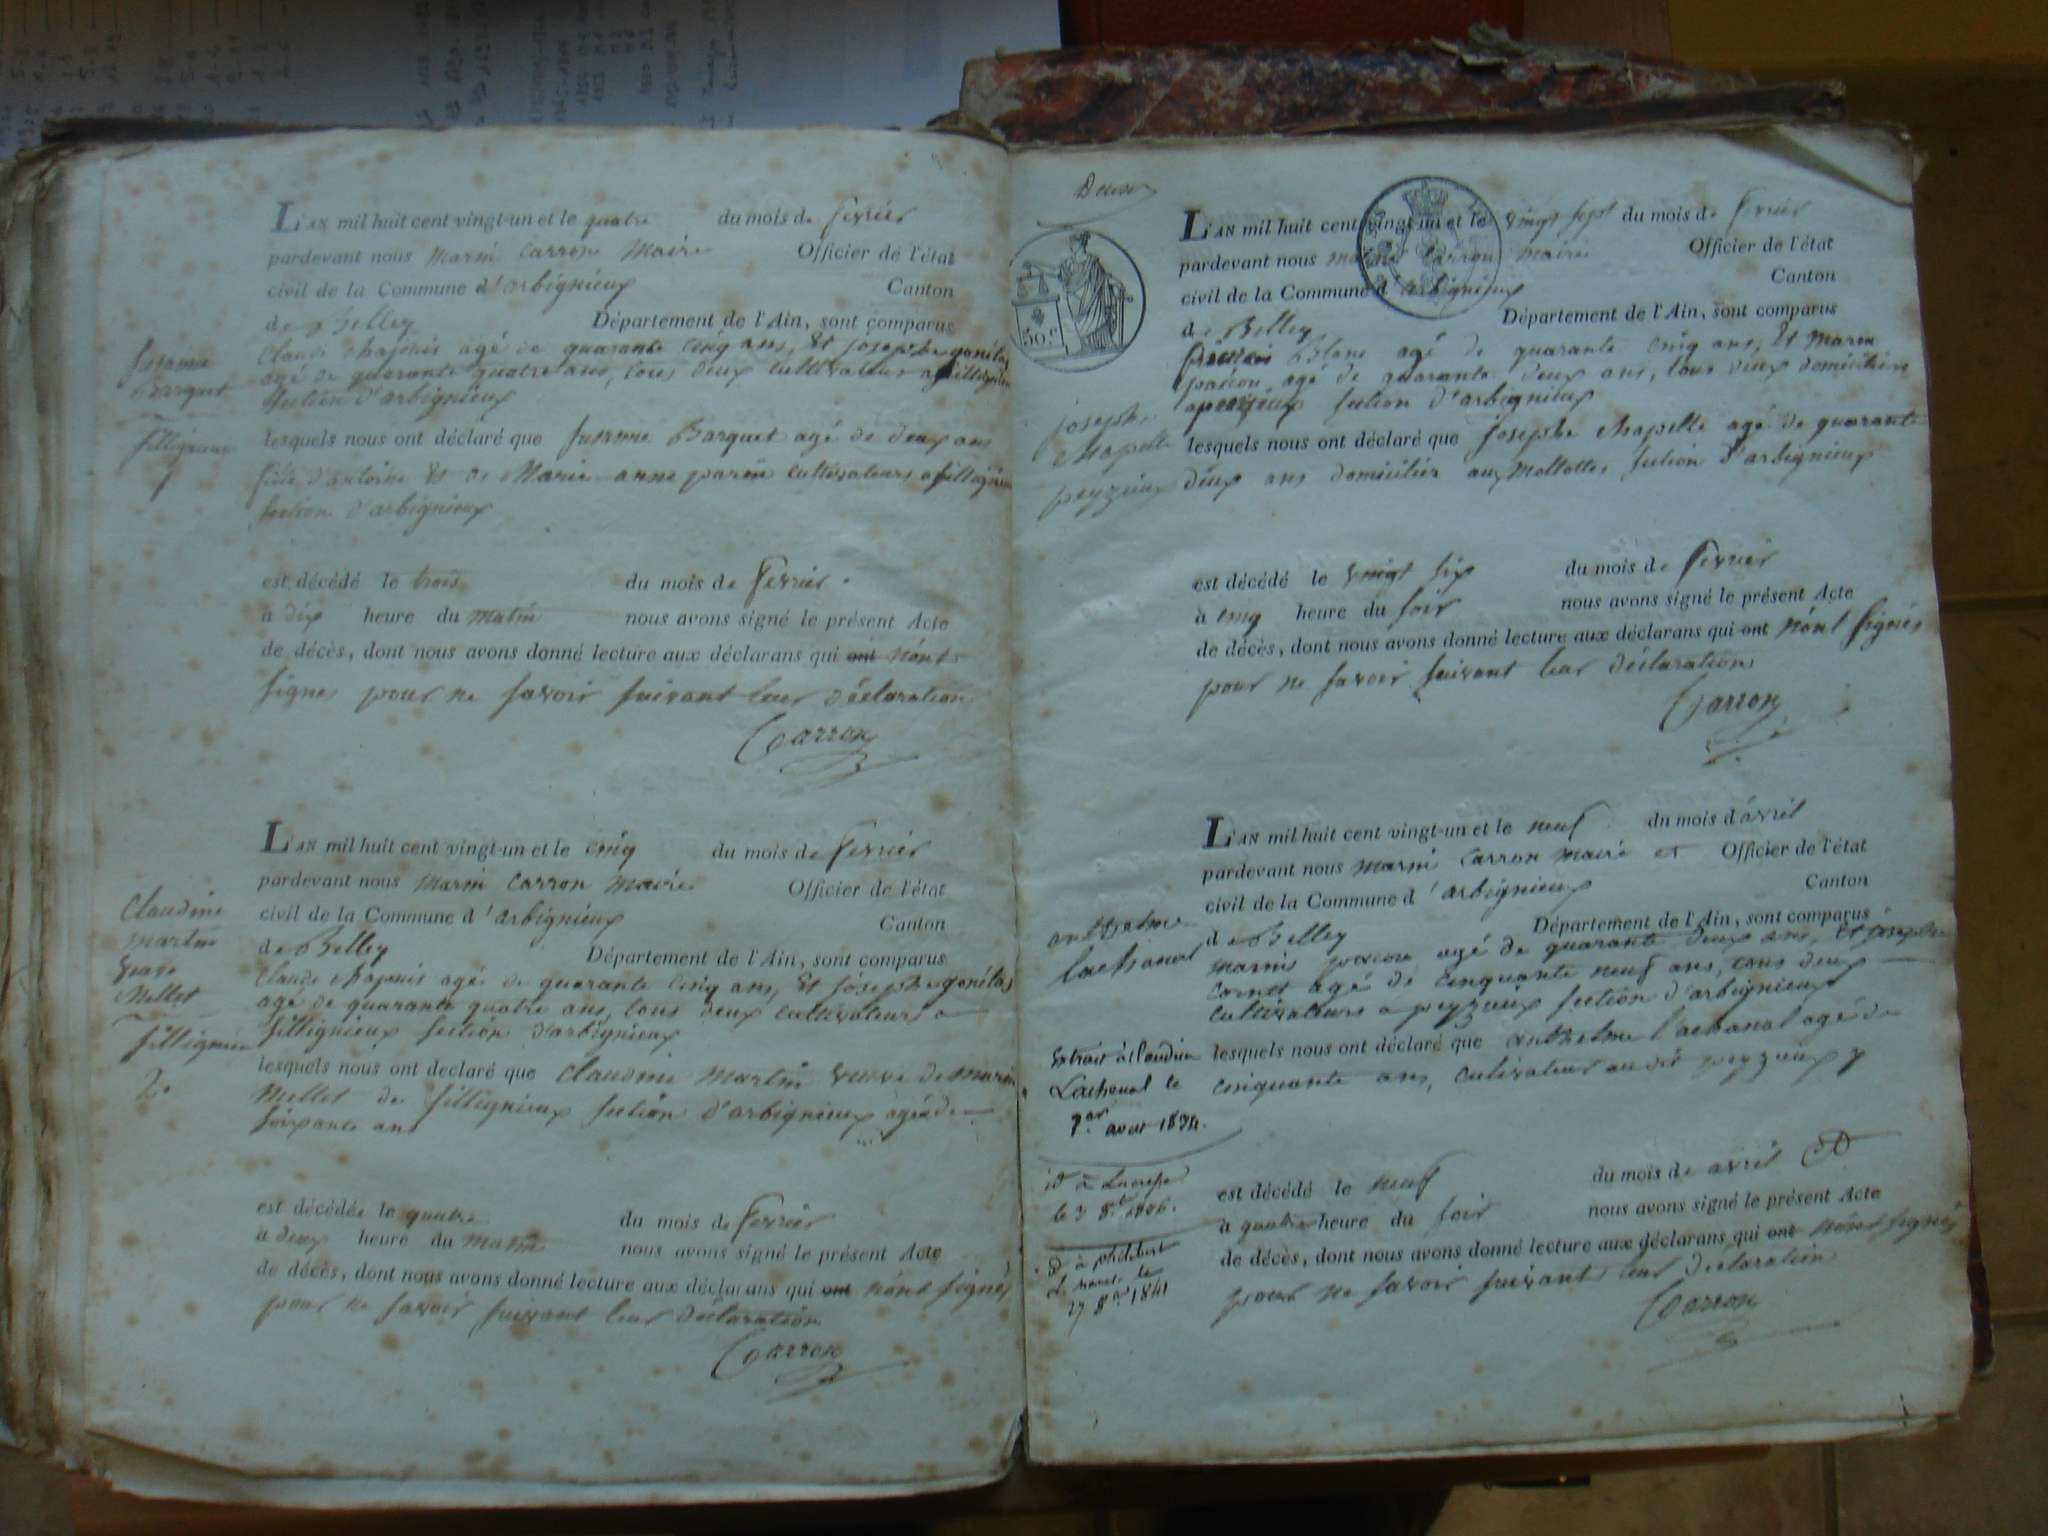 L'AN mil huit cent vingt-un et le quatre du mois de fevrier
pardevant nous Marin Carron Maire Officier de l'état
civil de la Commune d'arbignieux Canton
de Belley Département de l'Ain, sont comparus
Claude Chapuis agé de quarante cinq ans, Et Josephe
agé de quarante quatre ans, tous deux cultivateurs a
Section d'arbignieux
lesquels nous ont déclaré que Susanne Barquet agé de deux ans
fille d'antoine Et de Marie anne parin cultivateurs a
Section d'arbignieux
est décédé le trois du mois de fevrier.
a dix heure du matin nous avons signé le présent Acte
de décès, dont nous avons donné lecture aux déclarans qui ont n'ont
signes pour ne savoir suivant leur déclaration
Carron
Susanne
Barquet
fillignieux
L'AN mil huit cent vingt-un et le cinq du mois de fevrier
pardevant nous Marin Carron Maire Officier de l'état
civil de la Commune d'arbignieux Canton
de Belley Département de l'Ain, sont comparus
Claude Chapuis agé de quarante cinq ans, Et Josephe
agé de quarante quatre ans, tous deux cultivateurs a
fillignieux Section d'arbignieux
lesquels nous ont declaré que Claudine Martin veuve de marin
Mellet de fillignieux Section d'arbignieux agée de
soixante ans
est décédée le quatre du mois de fevrier
a deux heure du matin nous avons signé le présent Acte
de décès, dont nous avons donné lecture aux déclarans qui ont n'ont signés
pour ne savoir suivant leur déclaration
Carron
Claudine
martin
veuve
Mellet
fillignieux
2.
Deux
50. c
L'AN mil huit cent vingt-un et le vingt sept du mois de fevrier
pardevant nous Carron maire Officier de l'état
civil de la Commune d'arbignieux Canton
de Belley Département de l'Ain, sont comparus
Blanc agé de quarante cinq ans, Et Marin
agé de quarante deux ans, tous deux domiciliés
a peyzieux section d'arbignieux
lesquels nous ont déclaré que Josephe Chapelle agé de quarante
deux ans domicilier aux Mellottes section d'arbignieux
est décédé le vingt six du mois de fevrier
à cinq heure du soir nous avons signé le présent Acte
de décès, dont nous avons donné lecture aux déclarans qui ont n'ont signés
pour ne savoir suivant leur déclaration
Carron
josephe
chapelle
peyzieux
L'AN mil huit cent vingt-un et le neuf du mois d'avril
pardevant nous Marin Carron Maire Officier de l'état
civil de la Commune d'arbignieux Canton
de Belley Département de l'Ain, sont comparus
marin agé de quarante deux ans, Et josephe
cornet agé de cinquante neuf ans, tous deux
cultivateurs a peyzieux section d'arbignieux
lesquels nous ont déclaré que anthelme lachanal agé de
cinquante ans, cultivateur au dit peyzieux
est décédé le neuf du mois de avril
à quatre heure du soir nous avons signé le présent Acte
de décès, dont nous avons donné lecture aux déclarans qui ont n'ont signés
pour ne savoir suivant leur déclaration
Carron
anthelme
lachanal
Extrait à Claudine
Lachenal le
avril 1834.
id à
le 3 8.bre
id à philibert
le
27 8.bre 1841